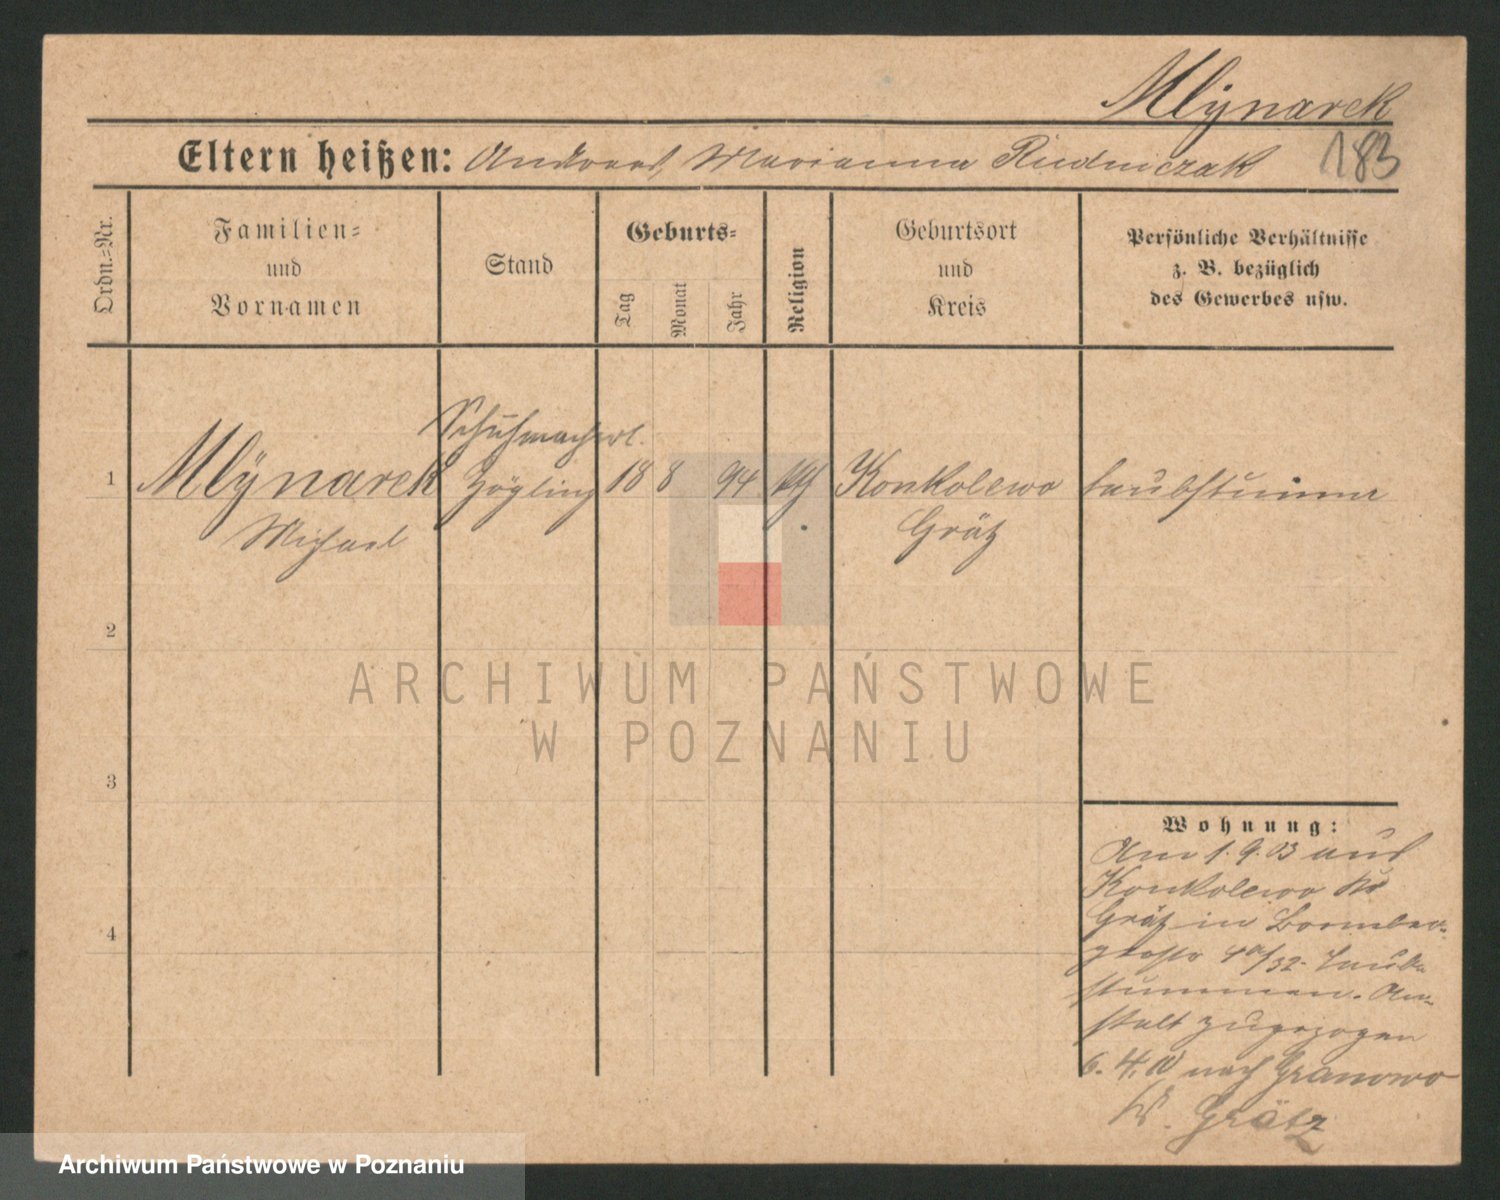 Mlÿnarek
Eltern heißen: Andreas, Marianna Rudniczak 183
Ordn.=Nr.
Familien=
und
Vornamen
Stand
Geburts=
Tag
Monat
Jahr
Religion
Geburtsort
und
Kreis
Persönliche Verhältnisse
z. B. bezüglich
des Gewerbes usw.
Schuhmacherl.
1 Mlÿnarek Zögling 18 8 94 kth Konkolewo taubstumm
Michael Grätz
2
3
4
Wohnung:
Am 1.9.03 aus
Konkolewo Kr
Grätz in Bromber-
gerstr 4a/32. Taub-
stummen-An-
stalt zugezogen
6.4.10 nach Granowo
Kr. Grätz
ARCHIWUM PAŃSTWOWE
W POZNANIU
Archiwum Państwowe w Poznaniu